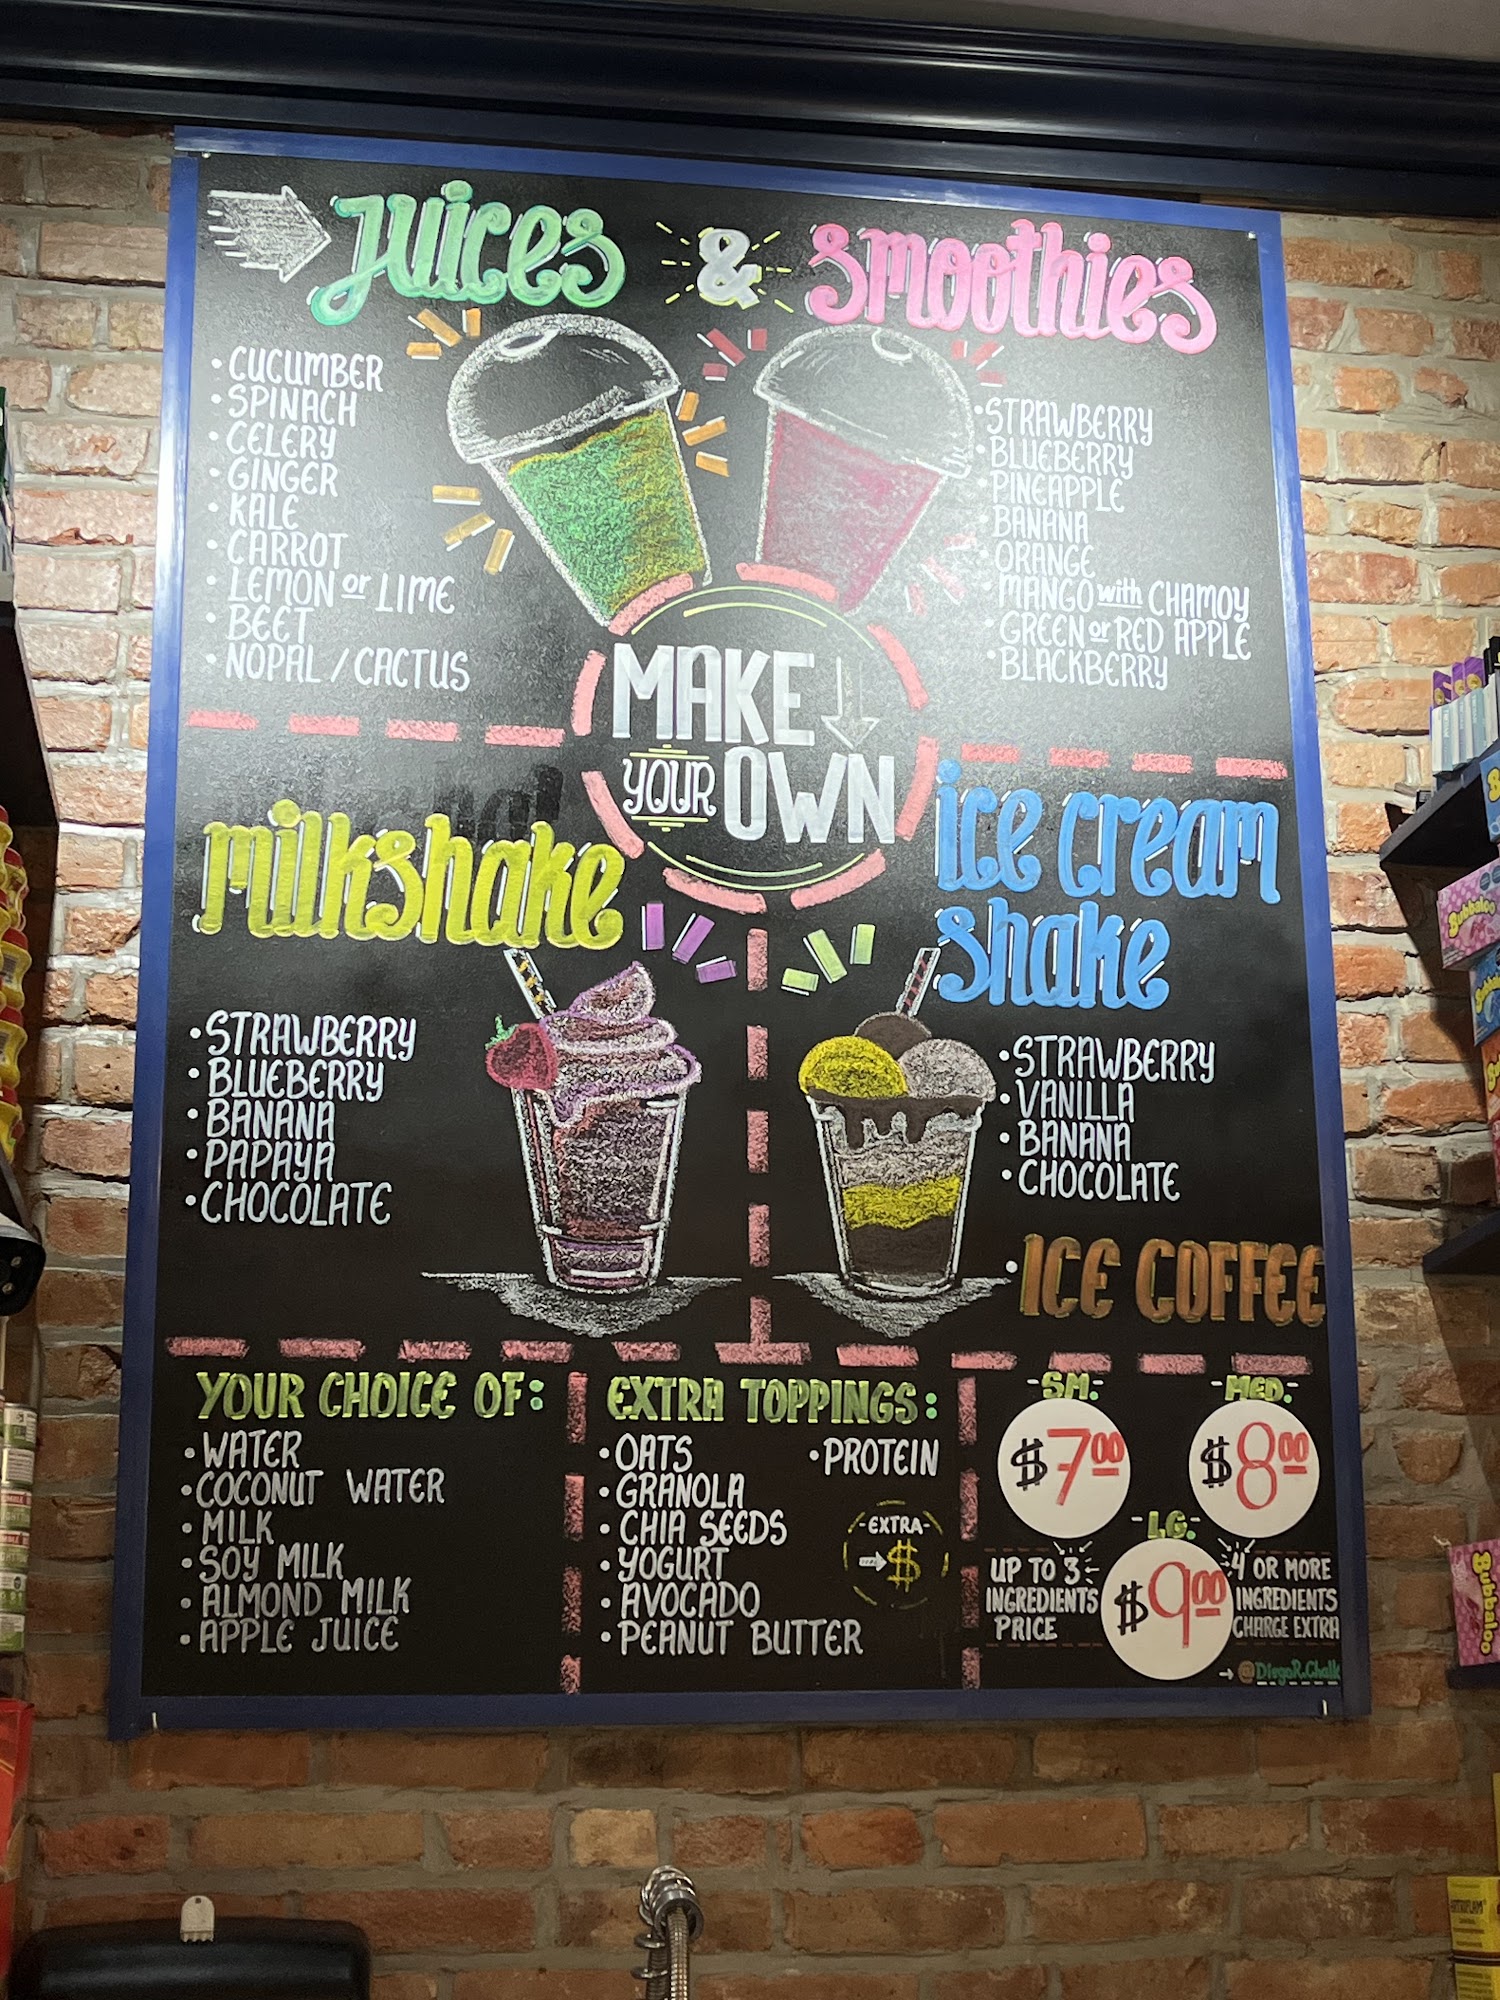 Juices & Smoothies
• CUCUMBER
• SPINACH
• CELERY
• GINGER
• KALE
• CARROT
• LEMON or LIME
• BEET
• NOPAL / CACTUS
• STRAWBERRY
• BLUEBERRY
• PINEAPPLE
• BANANA
• ORANGE
• MANGO with CHAMOY
• GREEN or RED APPLE
• BLACKBERRY
MAKE
YOUR OWN
milkshake
• STRAWBERRY
• BLUEBERRY
• BANANA
• PAPAYA
• CHOCOLATE
ice cream
shake
• STRAWBERRY
• VANILLA
• BANANA
• CHOCOLATE
• ICE COFFEE
YOUR CHOICE OF:
• WATER
• COCONUT WATER
• MILK
• SOY MILK
• ALMOND MILK
• APPLE JUICE
EXTRA TOPPINGS:
• OATS
• GRANOLA
• CHIA SEEDS
• YOGURT
• AVOCADO
• PEANUT BUTTER
• PROTEIN
-EXTRA-
$
-SM.-
$7.00
-MED.-
$8.00
-LG.-
$9.00
UP TO 3
INGREDIENTS
PRICE
4 OR MORE
INGREDIENTS
CHARGE EXTRA
@DiegoR.Chalk
Bubbaloo
Bubbaloo